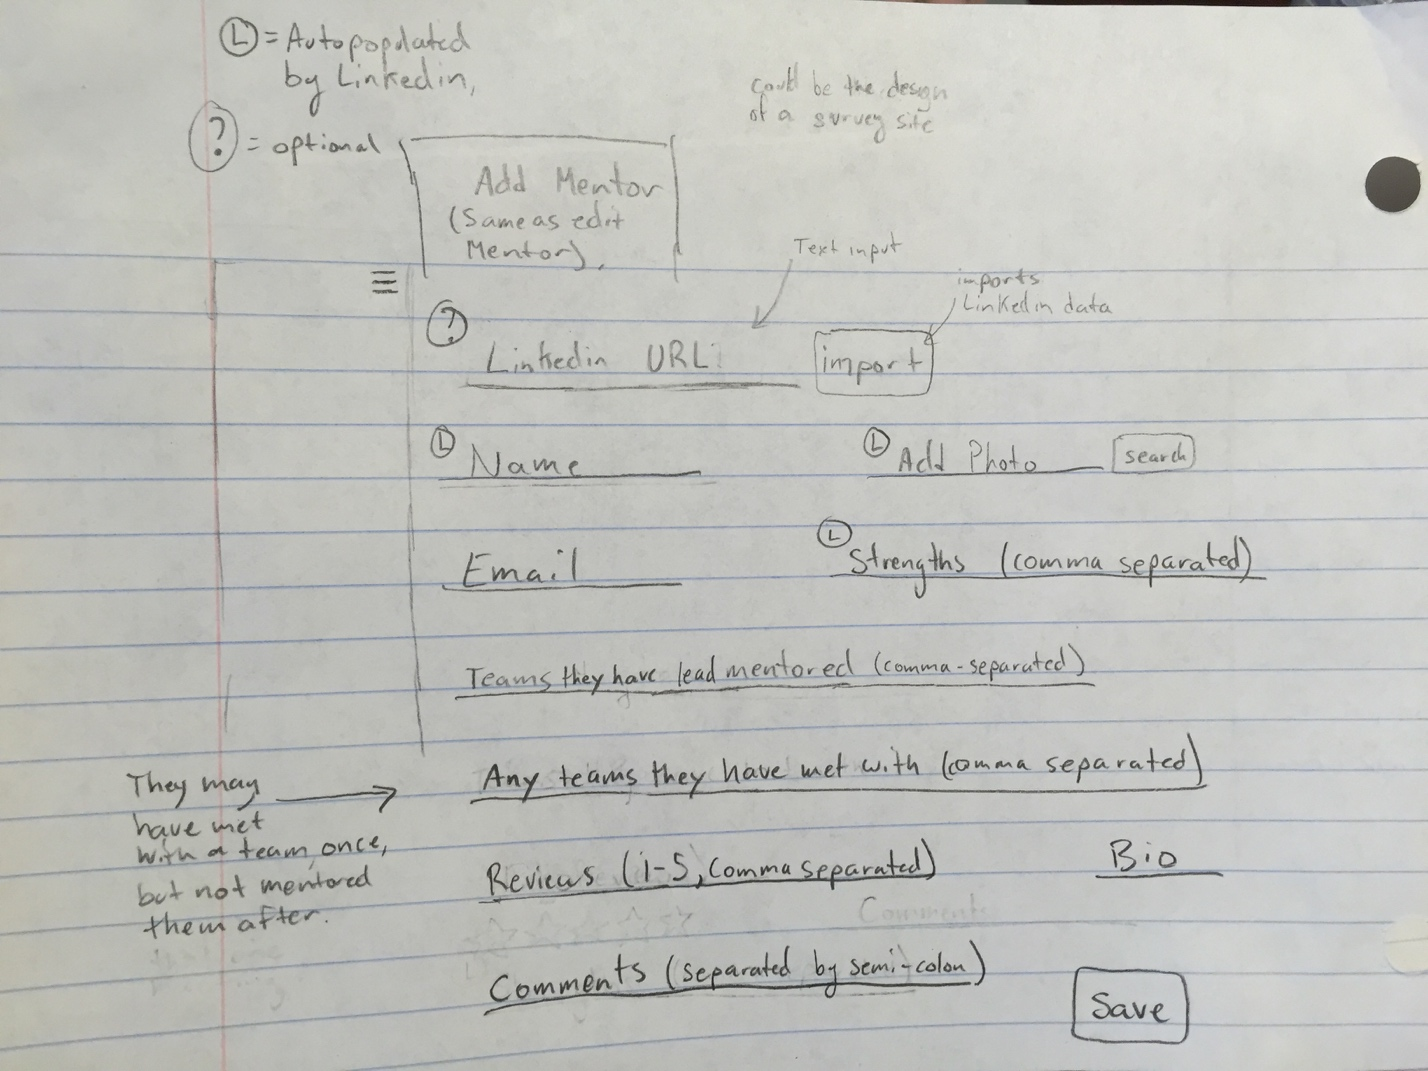 Ⓛ = Autopopulated
by Linkedin,
? = optional
could be the design
of a survey site
Add Mentor
(Same as edit
Mentor),
Text input
imports
Linkedin data
?
Linkedin URL:
import
Ⓛ Name
Ⓛ Add Photo
search
Email
Ⓛ Strengths (comma separated)
Teams they have lead mentored (comma-separated)
They may
have met
with a team once,
but not mentored
them after.
Any teams they have met with (comma separated)
Reviews (1-5, comma separated)
Bio
Comments
Comments (separated by semi-colon)
Save